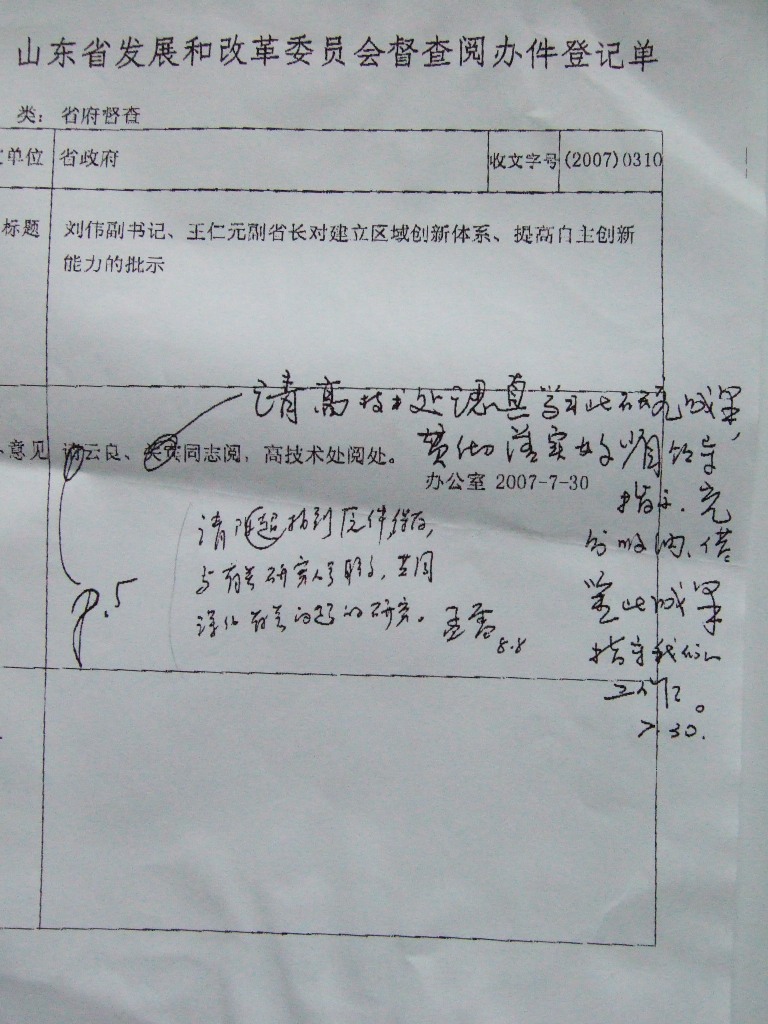 山东省发展和改革委员会督查阅办件登记单
类：省府督查
单位 省政府 收文字号 (2007)0310
标题 刘伟副书记、王仁元副省长对建立区域创新体系、提高自主创新
能力的批示
请高技术处认真学习此研究成果，
意见 云良、同志阅，高技术处阅处。
贯彻落实好省领导
办公室 2007-7-30
指示，充
分吸纳、借
鉴此成果
指导我们
工作。
7.30.
请 找到原件，保存，
与有关研究人员联系，共同
深化有关问题的研究。
8.8
8.5